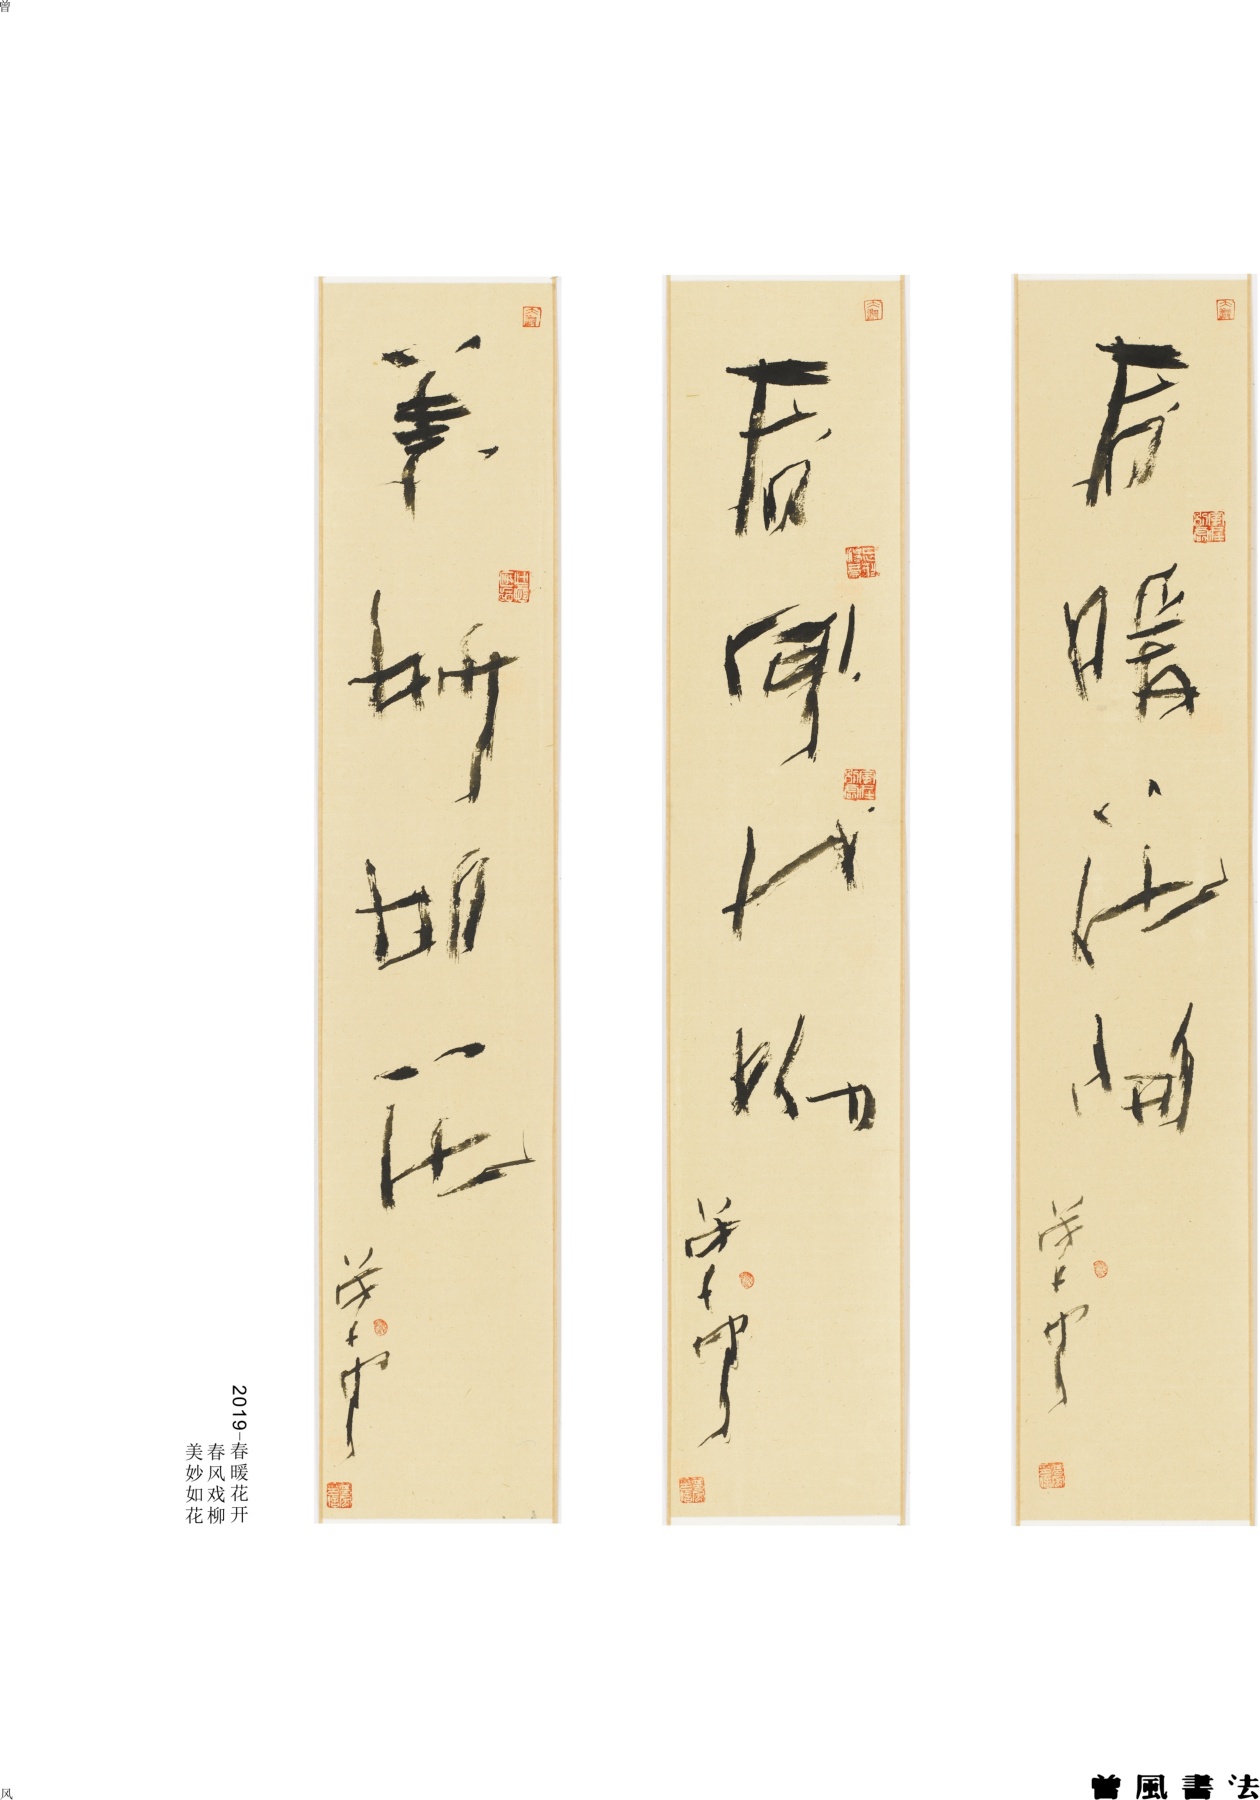 曾
春暖花開
春風戏柳
美妙如花
2019-春暖花开
春风戏柳
美妙如花
风
曾風書法